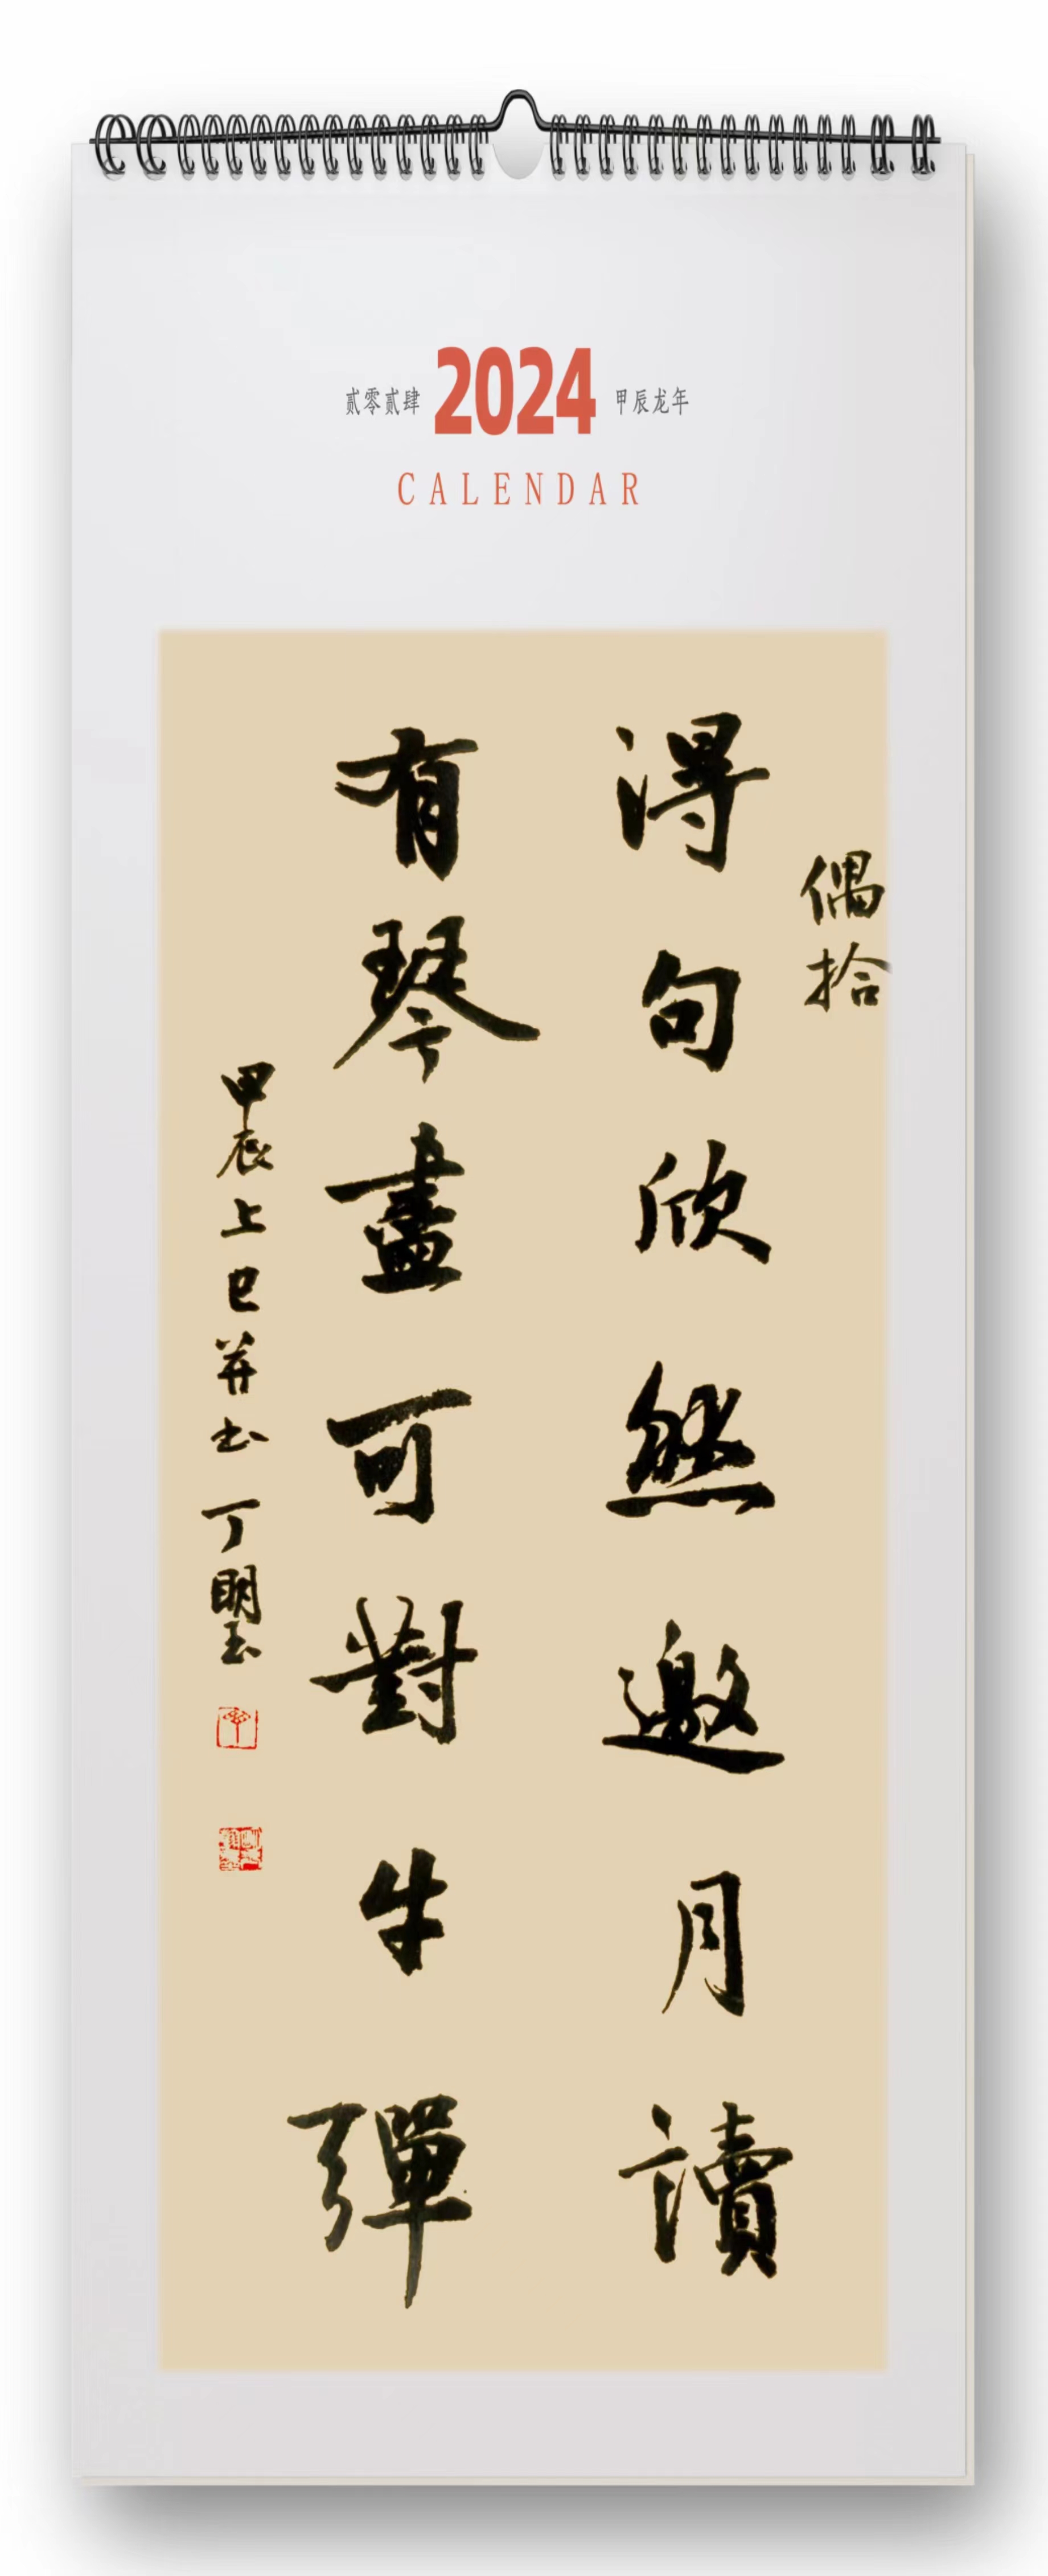 贰零贰肆 2024 甲辰龙年
CALENDAR
偶拾
得句欣然邀月讀
有琴盡可對牛彈
甲辰上巳并书 丁明玉